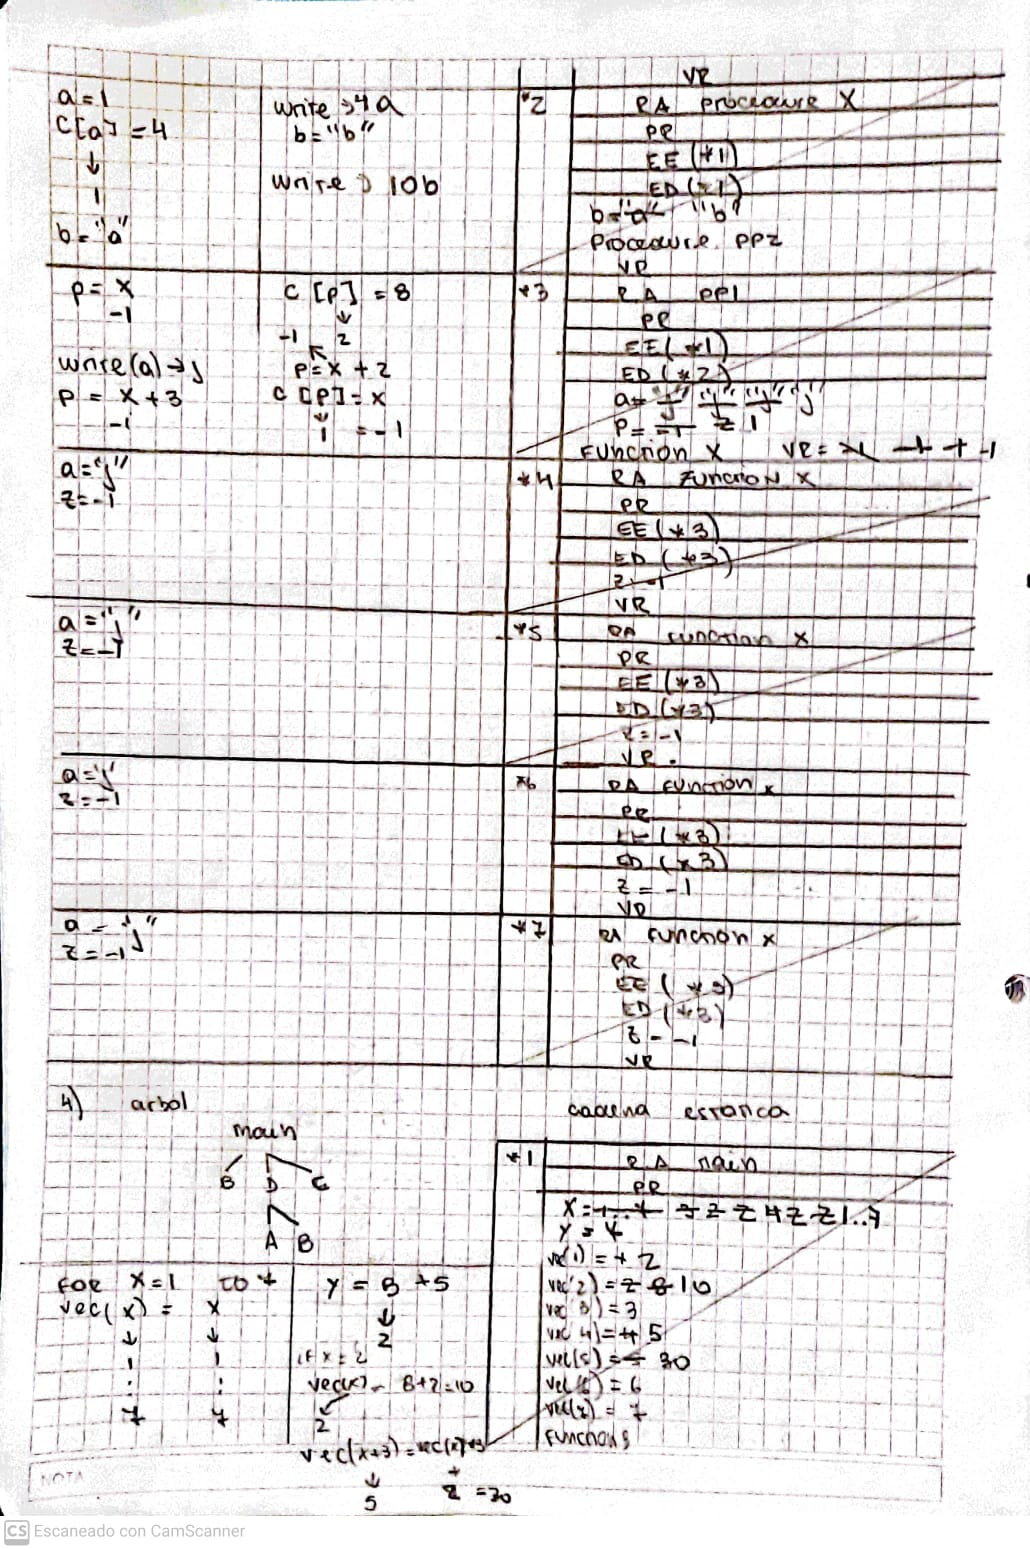 VR
a=1
C[a]=4
↓
1
b="a"
write → 4 a
b="b"
write → 10b
*2
RA procedure X
PR
EE (*1)
ED (*1)
b="a" "b"
Procedure PP2
VR
p= x
-1
write(a) → j
p = x+3
-1
C [p] = 8
↓
-1 2
p=x+2
C [p]=x
↓
1 =-1
*3
RA PP1
PR
EE(*1)
ED (*2)
a= "j" "j" "j" "j"
P= -1 2 1
Function X VR=
a="j"
z=-1
*4
RA Function X
PR
EE (*3)
ED (*3)
z=-1
VR
a="j"
z=-1
*5
RA Function X
PR
EE (*3)
ED (*3)
z=-1
VR
a="j"
z=-1
*6
RA Function x
PR
EE (*3)
ED (*3)
z=-1
VR
a="j"
z=-1
*7
RA Function x
PR
EE (*3)
ED (*3)
z=-1
VR
4) arbol
main
B D C
A B
cadena estatica
*1
RA main
PR
vec(1) = 1 2
vec(2) = 2 8 10
vec(3) = 3
vec(4) = 4 5
vec(5) = 5 30
vec(6) = 6
vec(7) = 7
Functions
FOR X=1 to 7
vec(x) = x
↓ ↓
1 1
: :
7 7
y = B +5
↓
2
if x=2
8+2=10
2
↓
5
NOTA
CS Escaneado con CamScanner